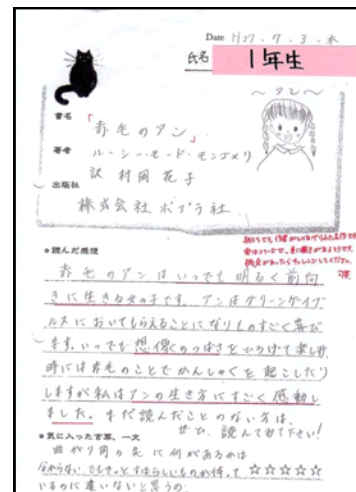 Date H27.7.3.木
氏名 1年生
〜アン〜
書名 「赤毛のアン」
著者 ルーシー・モード・モンゴメリ
訳 村岡花子
出版社 株式会社ポプラ社
●読んだ感想
赤毛のアンはいつでも明るく前向
きに生きる女の子です。アンはグリーンゲイブ
ルスにおいてもらえることになりものすごく喜び
ます。いつでも想像のつばさをひろげて楽しみ
時には赤毛のことでかんしゃくを起こしたり
しますが私はアンの生き方にすごく感動し
ました。まだ読んだことのない方は、
ぜひ、読んでみて下さい!
●気に入った言葉、一文
曲がり角の先に何があるかは
分からない。でもきっとすばらしいものが待って ☆☆☆☆☆
いるのに違いないと思うの